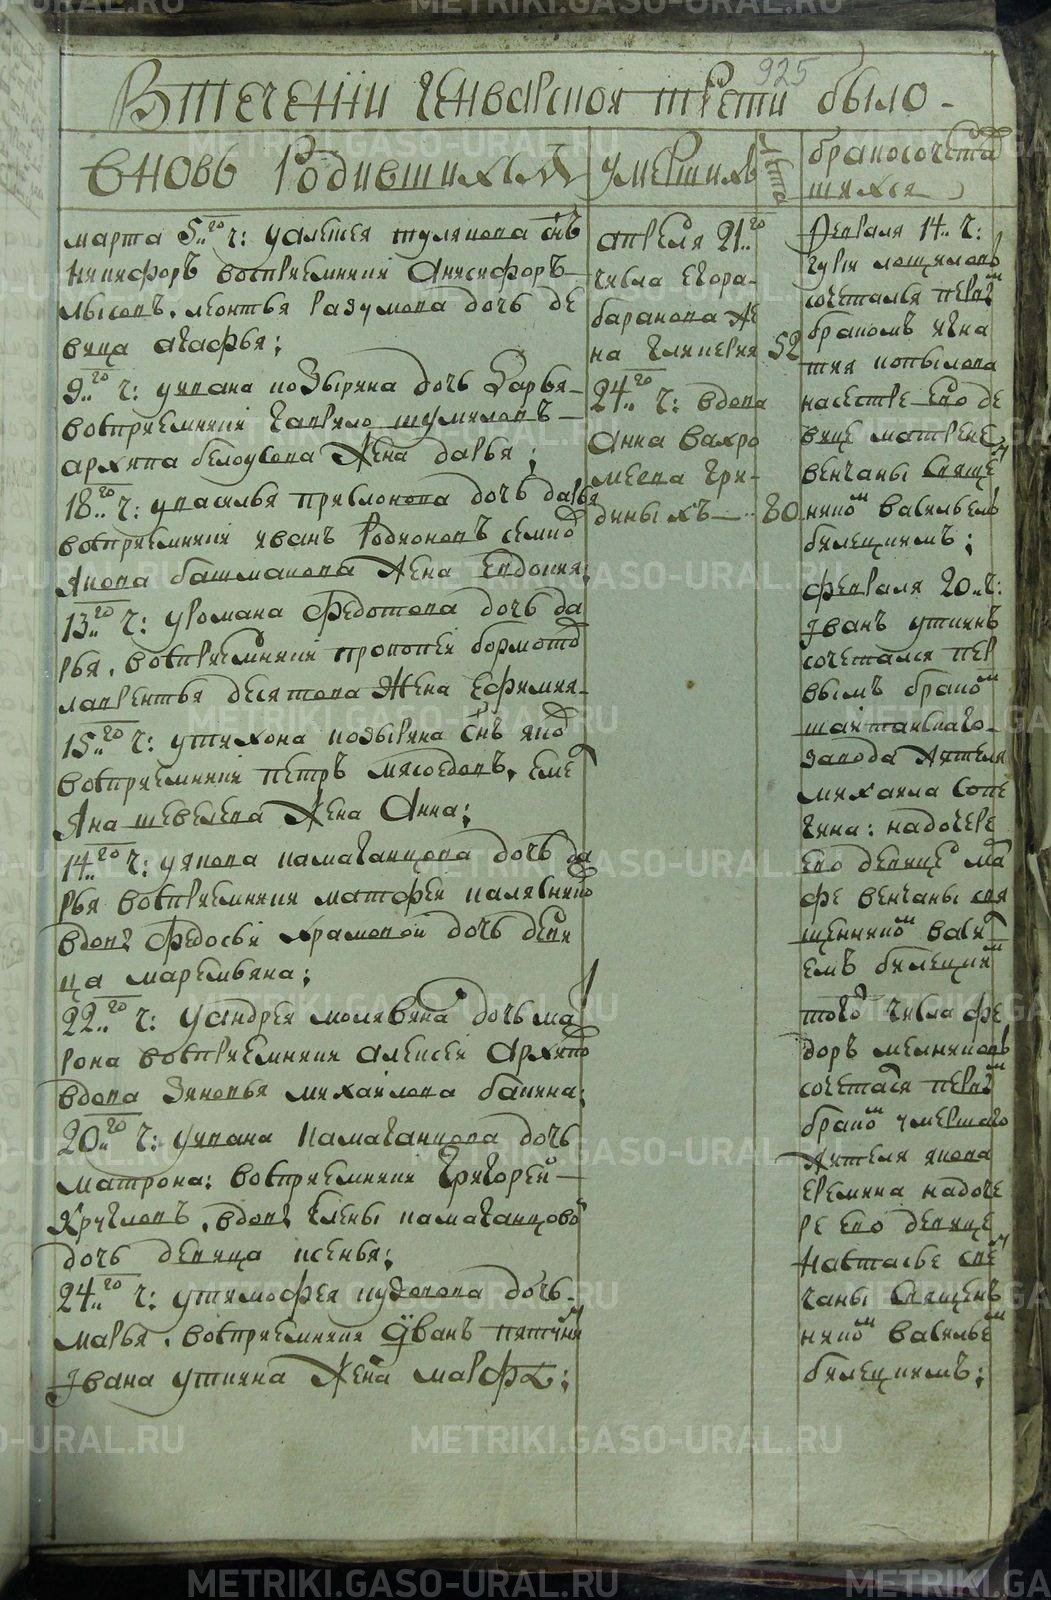 925
В течении генварской трети было
вновь родившихся
умерших
лета
бракосочетавшихся
марта 5го ч: у алексея тулякова снъ
никифоръ восприемники Анисифоръ
лысовъ, леонтья разумова дочь де
вица агафья;
9го ч: у ивана позырина дочь дарья
восприемники гаврило шумиловъ
архипа белоусова жена дарья;
18го ч: у василья прислонова дочь дарья
восприемники иванъ Родионовъ семио
якова башмакова жена евдокия;
13го ч: у романа федотова дочь да
рья, восприемники прокопеи бормото
лаврентья десятова жена ефимия
15го ч: у тихона позырина снъ яко
восприемники петръ мясоедовъ, еме
лияна шевелева жена Анна;
14го ч: у якова камаганцова дочь да
рья восприемники матфеи
вдовы федосьи храмовой дочь деви
ца маремьяна;
22го ч: у андрея молявина дочь мат
рона восприемники алексеи Архипо
вдова зиновья михаилова бакина;
20го ч: у ивана камаганцова дочь
матрона; восприемники Григорей
Кругловъ, вдовы Елены камаганцовой
дочь девица ксенья;
24го ч: у тимофея дочь
марья, восприемники Иванъ
Ивана уткина жена марфа;
апреля 21го
числа егора
баранова же
на гликерия 52
24го ч: вдова
Анна вахро
меева гри
диныхъ 80
Февраля 14 ч:
гурiи лощиловъ
сочетался первы
бракомъ игна
тия копылова
на сестре ево де
вице матрене
венчаны Свяще
ником васильемъ
билецкимъ;
февраля 20 ч:
Iванъ уткинъ
сочетался пер
вымъ браком
шайтанскаго
завода жителя
михаила Сопе
гина: на дочере
ево девице ма
фе венчаны свя
щенником васи
емъ билецким
того числа фе
доръ мелниковъ
сочетася первы
браком умершаго
жителя якова
еремина на доче
ре ево девице
настасье вен
чаны Священ
ником василье
билецкимъ;
METRIKI.GASO-URAL.RU